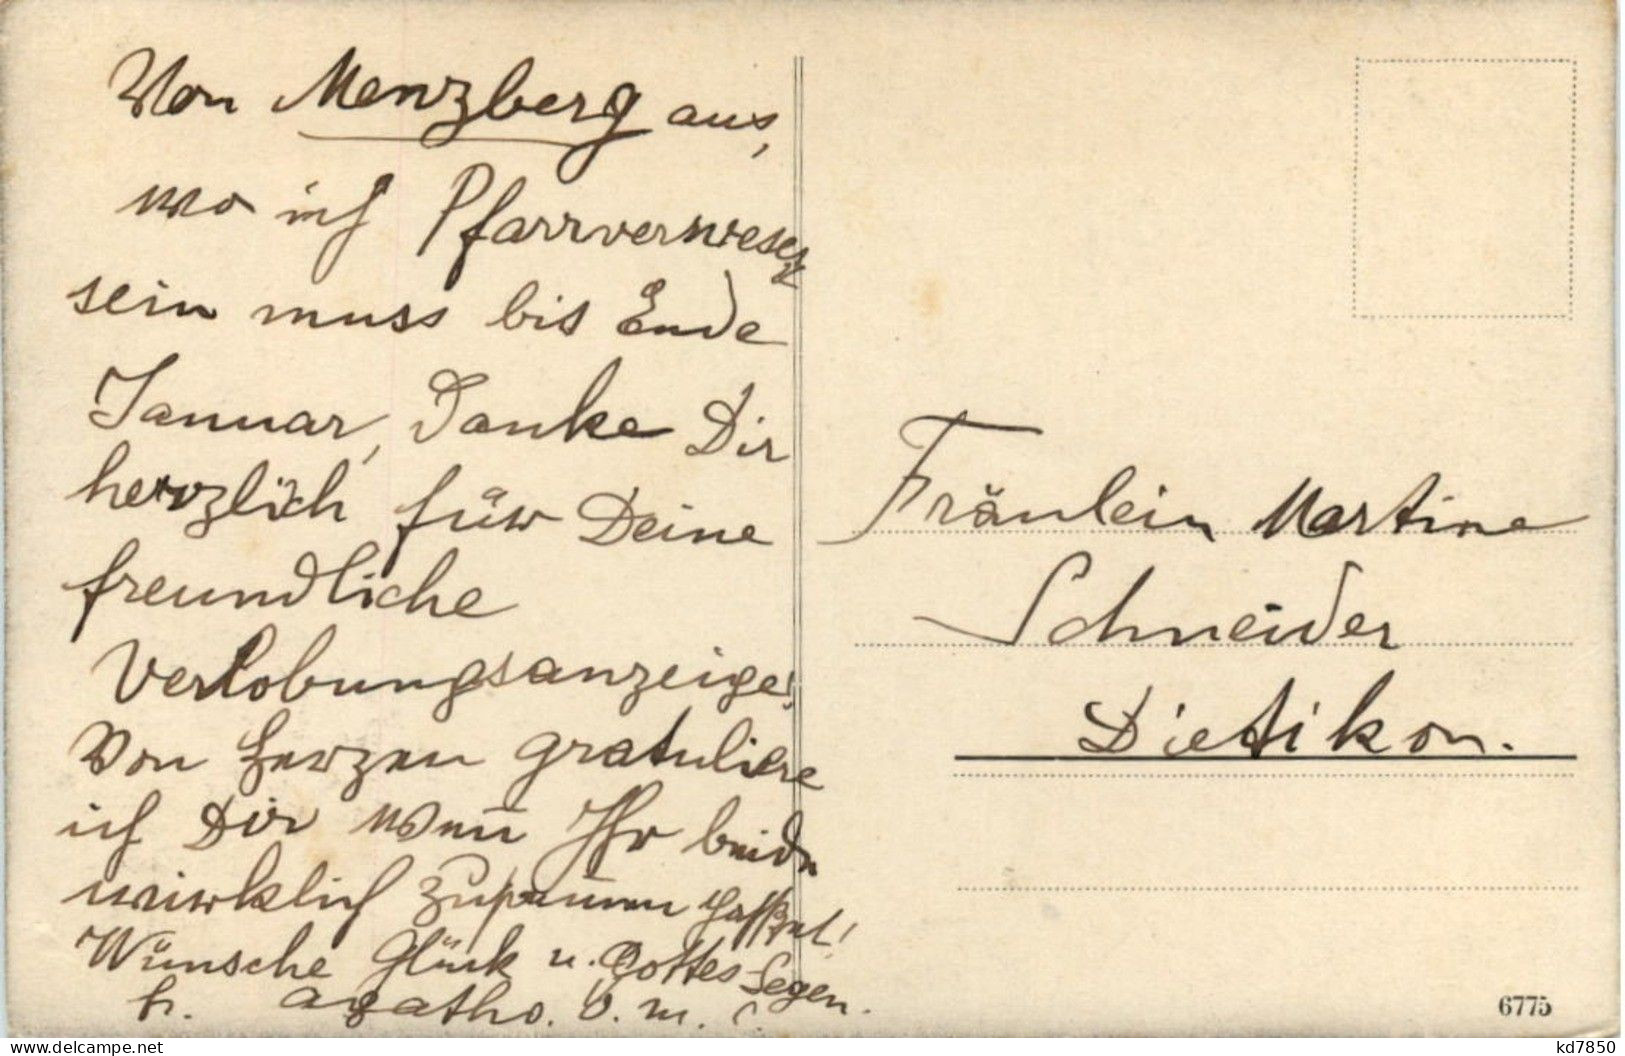 Von Menzberg aus,
wo ich Pfarrverweser
sein muss bis Ende
Januar, Danke Dir
herzlich für Deine
freundliche
Verlobungsanzeige!
Von Herzen gratuliere
ich Dir wenn Ihr beide
wirklich zusammen passet!
Wünsche Glück u. Gottes Segen.
P. Agatho. O. M. C.
Fräulein Martine
Schneider
Dietikon.
6775
kd7850